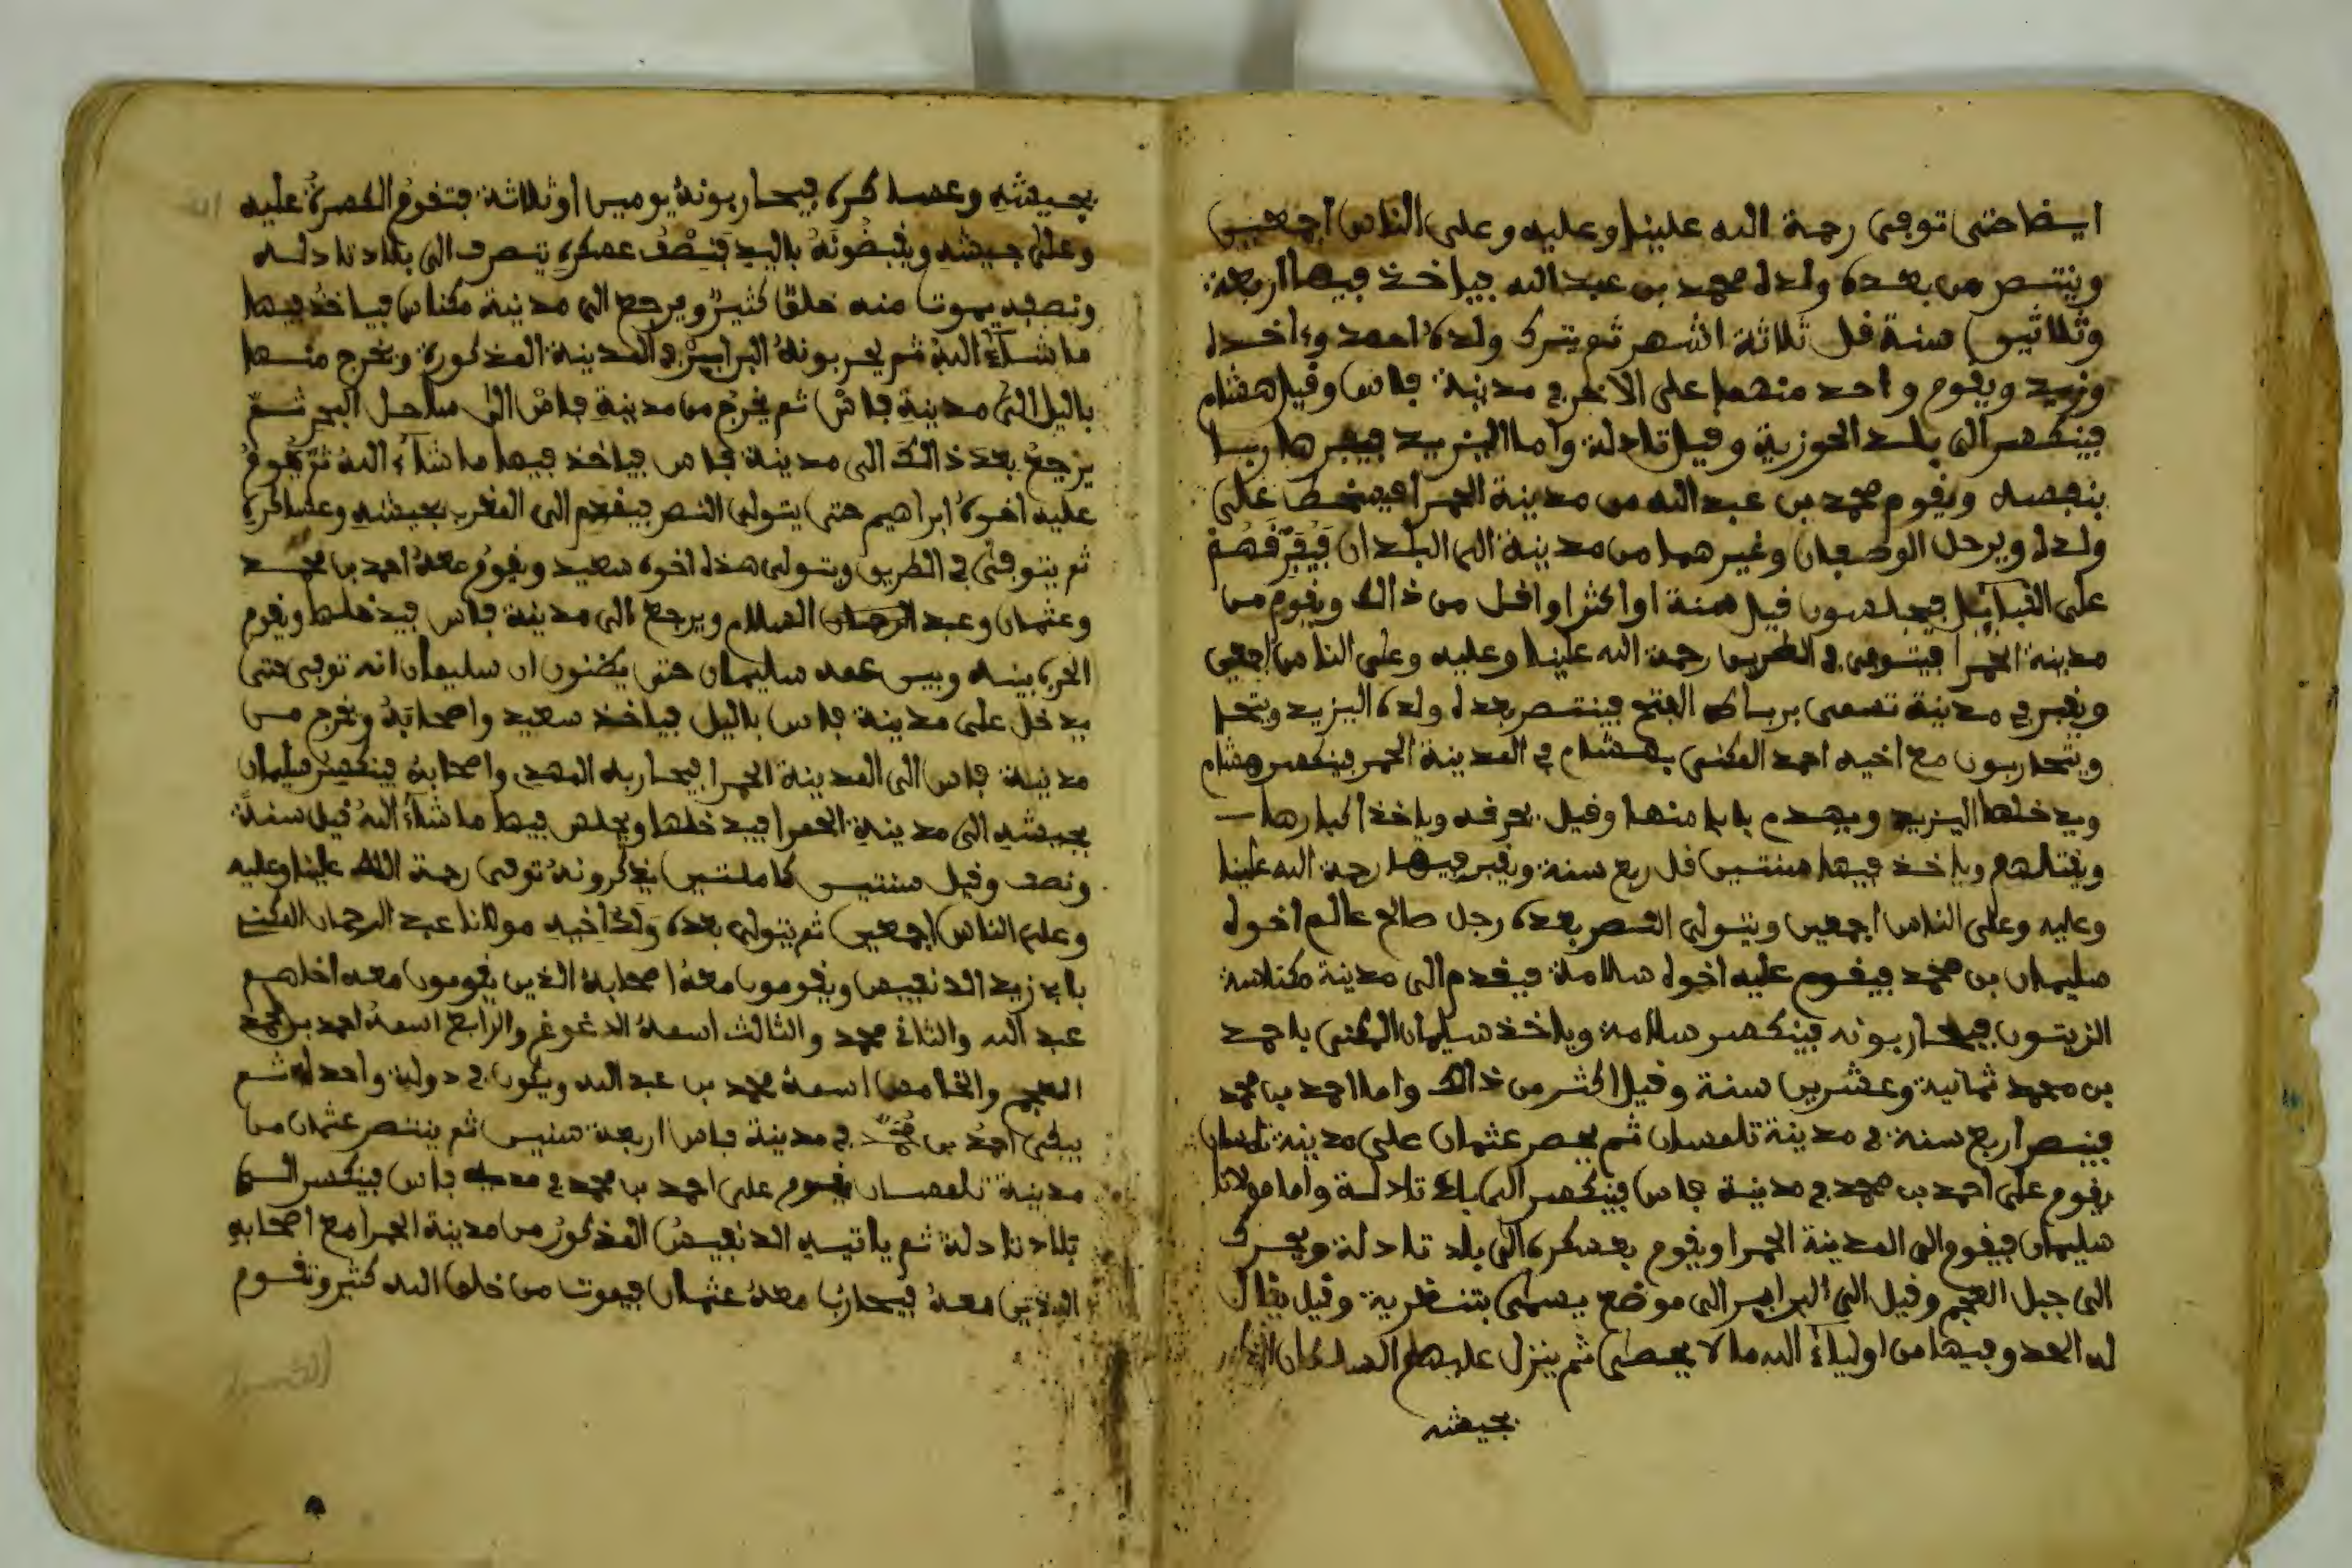 ايضا حتى توفى رحمة الله علينا وعليه وعلى الناس اجمعين
وينتصر من بعده ولده محمد بن عبد الله فياخذ فيها اربعة
وثلاثين سنة قل ثلاثة اشهر ثم يترك ولده احمد وءاخد
وزيد ويقوم واحد منهما على الاخر في مدينة فاس وقيل هشام
فينكسر الى بلد الحوزية وقيل تادلة واما اليزيد فيفر هاربا
بنفسه ويقوم محمد بن عبد الله من مدينة الحمرا فيسخط على
ولده ويرحل الوصفان وغيرهما من مدينة الى البلدان فيفرقهم
على القبايل فيجلسون قيل سنة او اكثر او اقل من ذالك ويقوم من
مدينة الحمرا فيتوفى في الطريق رحمة الله علينا وعليه وعلى الناس اجمعين
ويقبر في مدينة تسمى برباط الفتح فينتصر بعده ولده اليزيد
ويتحاربون مع اخيه احمد المكنى بهشام في المدينة الحمر فينكسر هشام
ويدخلها اليزيد ويهدم بابا منها وقيل يحرقه وياخذ اكبارها
ويقتلهم وياخذ فيها سنتين قل ربع سنة ويقبر فيها رحمة الله علينا
وعليه وعلى الناس اجمعين ويتولى النصر بعده رجل صالح عالم اخوه
سليمان بن محمد فيقوم عليه اخوه سلامة فيقدم الى مدينة مكناسة
الزيتون فيحاربونه فينكسر سلامة وياخذ سليمان المكنى باحمد
بن محمد ثمانية وعشرين سنة وقيل اكثر من ذالك واما احمد بن محمد
فينصر اربع سنة في مدينة تلمسان ثم ينصر عثمان على مدينة تلمسان
يقوم على احمد بن محمد في مدينة فاس فينكسر الى بلد تادلة واما مولانا
سليمان فيقوم الى المدينة الحمرا ويقوم بعسكره الى بلد تادلة
الى جبل العجم وقيل الى البرابر الى موضع يسمى وقيل يقال
له العدو وفيها من اولياء الله ما لا يحصى ثم ينزل عليهم السلطان
بجيشه
بجيشه وعساكره فيحاربونه يومين او ثلاثة فتقوم الكسرة عليه
وعلى جيشه ويقبضونه باليد فنصف عسكره تنصرف الى بلاد تادله
ونصفه يموت منه خلق كثير ويرجع الى مدينة مكناس فياخذ فيها
ما شاء الله ثم يحربونه البرابر في المدينة المذكورة ويخرج منها
باليل الى مدينة فاس ثم يخرج من مدينة فاس الى ساحل البحر ثم
يرجع بعد ذالك الى مدينة فاس فياخذ فيها ما شاء الله ثم يقوم
عليه اخوه ابراهيم حتى يتولى النصر فيقدم الى المغرب بجيشه وعساكره
ثم يتوفى في الطريق ويتولى هذا اخوه سعيد ويقوم معه احمد بن محمد
وعثمان وعبد الرحمان السلام ويرجع الى مدينة فاس فيدخلها ويقوم
الحرب بينه وبين عمه سليمان حتى يظنون ان سليمان انه توفى حتى
يدخل على مدينة فاس باليل فياخذ سعيد واصحابه ويخرج من
مدينة فاس الى المدينة الحمرا فيحاربه المهدى واصحابه فينكسر سليمان
بجيشه الى مدينة الحمرا فيدخلها ويجلس فيها ما شاء الله قيل سنة
ونصف وقيل سنتين كاملتين يذكرونه توفى رحمة الله علينا وعليه
وعلى الناس اجمعين ثم يتولى بعده ولد اخيه مولانا عبد الرحمان المكنى
بابى زيد ويقومون معه اصحابه الذين يقومون معه
عبد الله والثانى محمد والثالث اسمه والرابع اسمه احمد بن محمد
العجم والخامس اسمه محمد بن عبد الله ويكون في دولة واحدة ثم
يبقى احمد بن محمد في مدينة فاس اربعة سنين ثم ينتصر عثمان من
مدينة تلمسان يقوم على احمد بن محمد في مدينة فاس فينكسر الى
بلاد تادلة ثم ياتيه المذكور من مدينة الحمرا مع اصحابه
الذين معه فيحارب معه عثمان فيموت من خلق الله كثير وتقوم